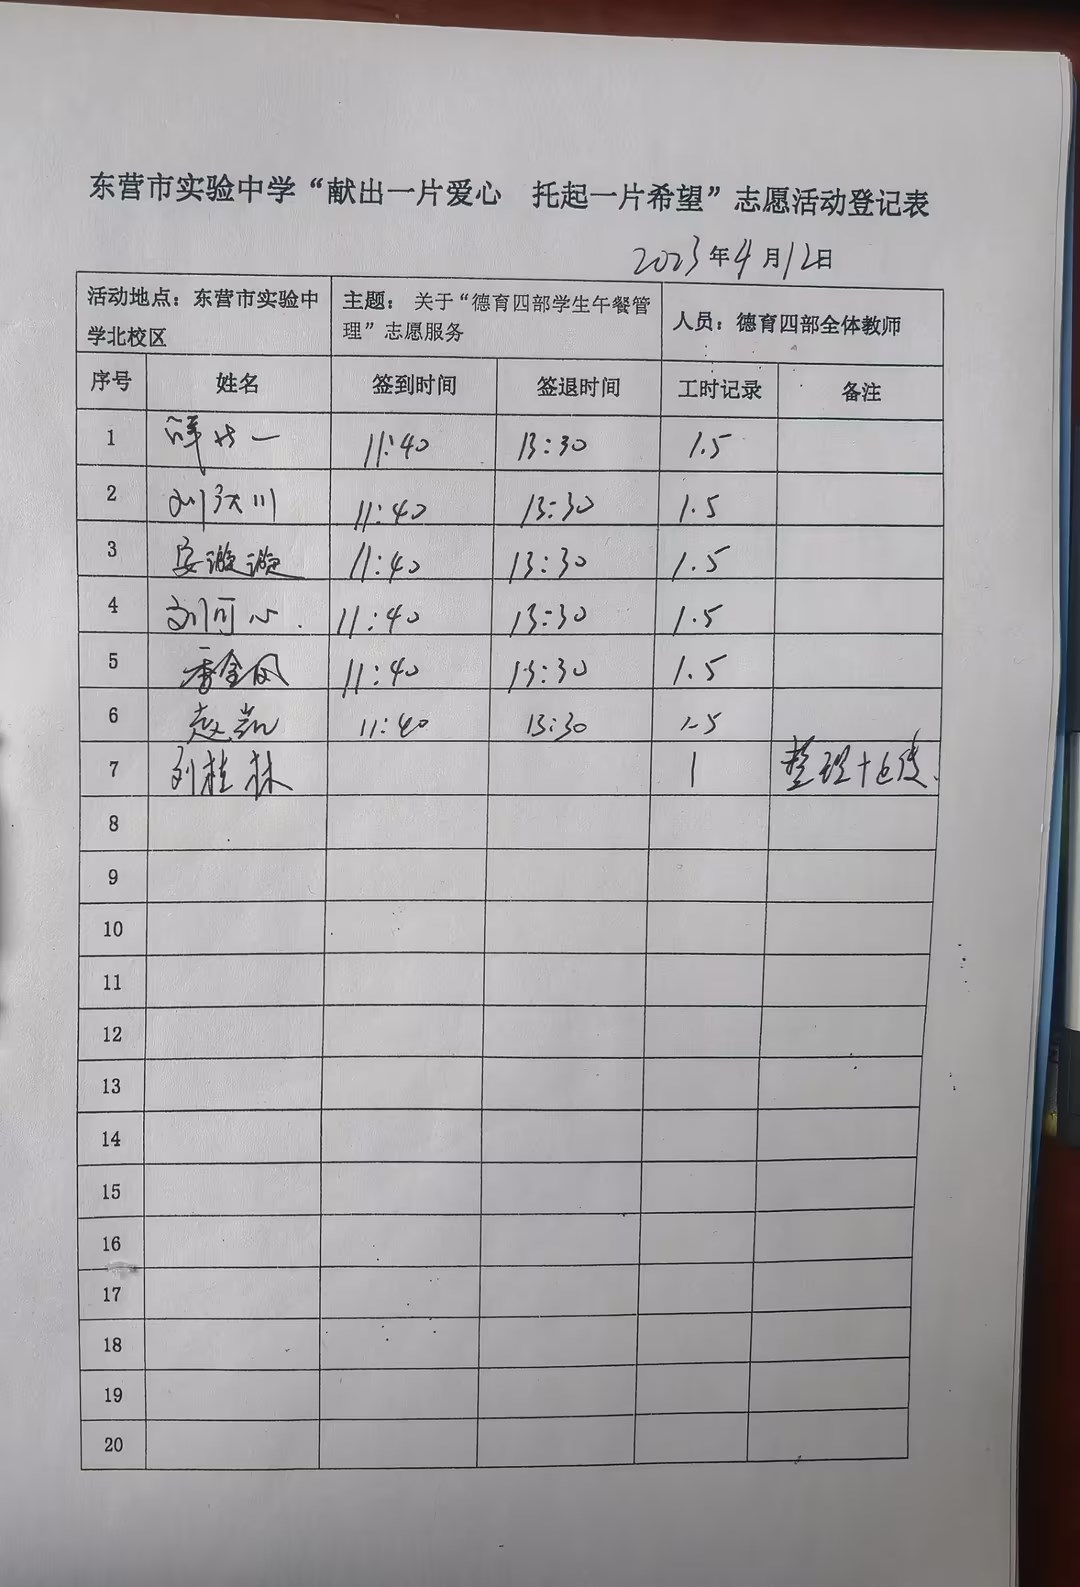 东营市实验中学“献出一片爱心 托起一片希望”志愿活动登记表
2023年4月12日
活动地点：东营市实验中学北校区 主题：关于“德育四部学生午餐管理”志愿服务 人员：德育四部全体教师
序号 姓名 签到时间 签退时间 工时记录 备注
1 一 11:40 13:30 1.5
2 刘 川 11:40 13:30 1.5
3 安 11:40 13:30 1.5
4 刘可心. 11:40 13:30 1.5
5 金凤 11:40 13:30 1.5
6 赵凯 11:40 13:30 1.5
7 刘桂林 1 整理
8
9
10
11
12
13
14
15
16
17
18
19
20